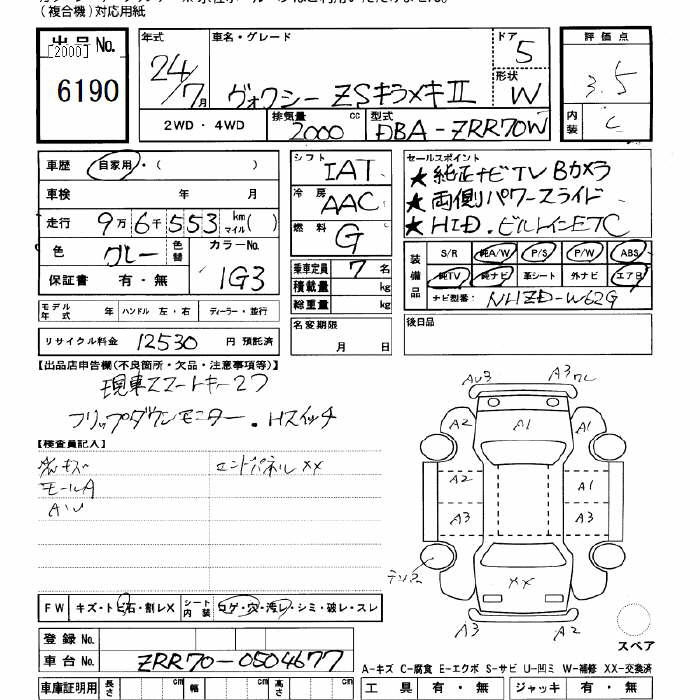 (複合機)対応用紙
出品No.
[2000]
6190
年式
24/7月
車名・グレード
ヴォクシー ZSキラメキⅡ
ドア
5
形状
W
評価点
3.5
内装
C
2WD・4WD
排気量
2000 cc
型式
DBA-ZRR70W
車歴 自家用・( )
車検 年 月
走行 9万6千553 km マイル( )
色 グレー 色替 カラーNo. 1G3
保証書 有・無
シフト IAT
冷房 AAC
燃料 G
乗車定員 7 名
積載量 kg
総重量 kg
セールスポイント
★純正ナビTV Bカメラ
★両側パワースライド
★HID. ビルトインETC
装備品
S/R 純A/W P/S P/W ABS
純TV 純ナビ 革シート 外ナビ エアB
ナビ型番: NHZD-W62G
モデル年式 年 ハンドル 左・右 ディーラー・並行
名変期限
月 日
後日品
リサイクル料金 12530 円 預託済
【出品店申告欄(不良箇所・欠品・注意事項等)】
現車スマートキー2コ
フリップダウンモニター・Hスイッチ
【検査員記入】
エンドパネルXX
モールA
AU3
A3
A2
A1
A2
A2
A1
A3
A3
XX
A3
A2
FW キズ・トビ石・割レX シート内装 コゲ・穴・汚レ・シミ・破レ・スレ
スペア
登録No.
車台No. ZRR70-0504677
A-キズ C-腐食 E-エクボ S-サビ U-凹ミ W-補修 XX-交換済
車庫証明用 長さ cm 幅 cm 高さ cm
工具 有・無 ジャッキ 有・無